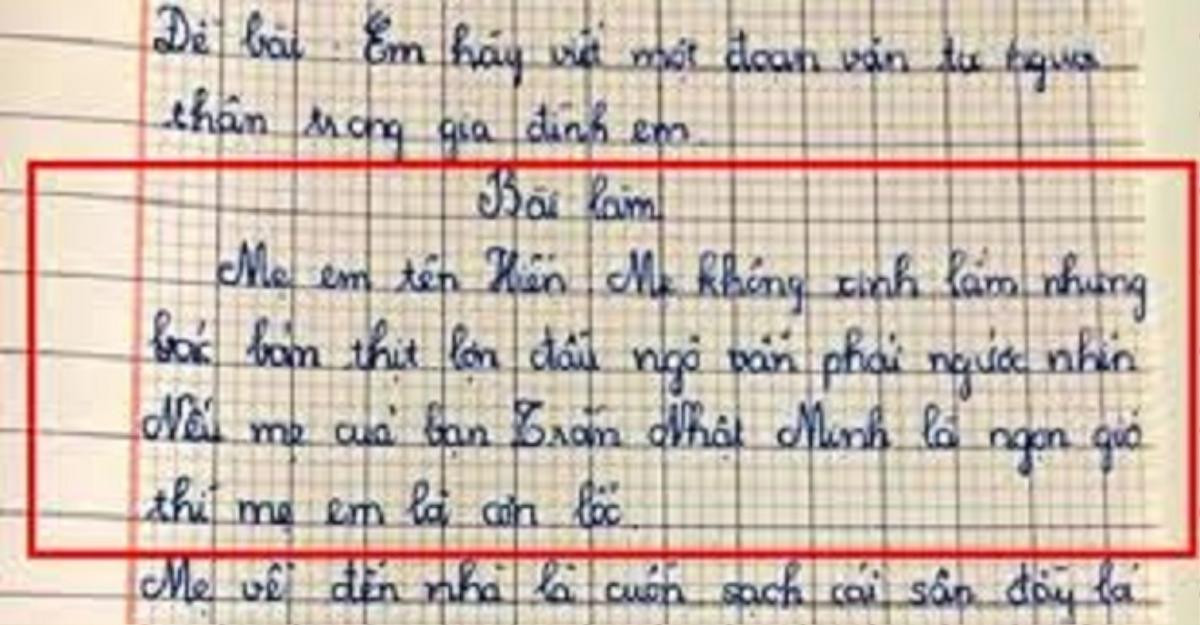 Đề bài: Em hãy viết một đoạn văn tả người
thân trong gia đình em.
Bài làm
Mẹ em tên Hiền. Mẹ không xinh lắm nhưng
bác bán thịt lợn đầu ngõ vẫn phải ngước nhìn
Nếu mẹ của bạn Trần Nhật Minh là ngọn gió
thì mẹ em là cơn lốc.
Mẹ về đến nhà là cuốn sạch cái sân đầy lá